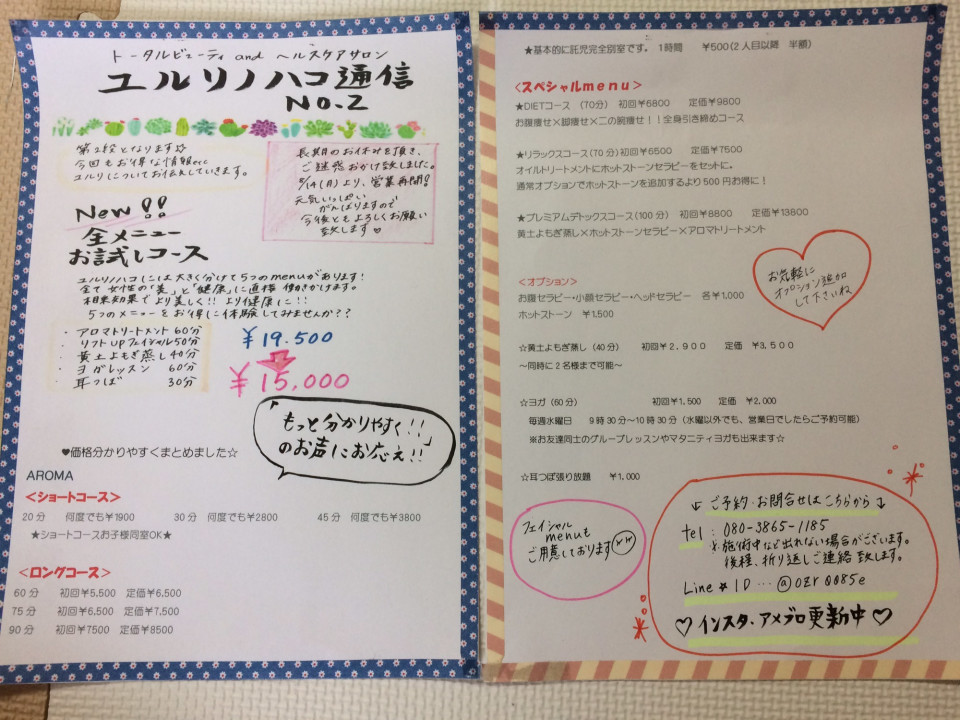 トータルビューティ and ヘルスケアサロン
ユルリノハコ通信
NO.2
第2校となります☆
今回もお得な情報etc
ユルリについてお伝えしていきます。
長期のお休みを頂き、
ご迷惑おかけ致しました。
5/14(月)より、営業再開!!
元気いっぱい
がんばりますので
今後ともよろしくお願い
致します♡
New!!
全メニュー
お試しコース
ユルリノハコには大きく分けて5つのmenuがあります!
全て女性の「美」と「健康」に直接働きかけます。
相乗効果でより美しく!!より健康に!!
5つのメニューをお得に体験してみませんか??
・アロマトリートメント 60分
・リフトUPフェイシャル50分
・黄土よもぎ蒸し40分
・ヨガレッスン 60分
・耳つぼ 30分
¥19.500
¥15,000
「もっと分かりやすく!!」
のお声にお応え!!
♥価格分かりやすくまとめました☆
AROMA
<ショートコース>
20分 何度でも¥1900 30分 何度でも¥2800 45分 何度でも¥3800
★ショートコースお子様同室OK★
<ロングコース>
60分 初回¥5,500 定価¥6,500
75分 初回¥6,500 定価¥7,500
90分 初回¥7500 定価¥8500
★基本的に託児完全別室です。1時間 ¥500(2人目以降 半額)
<スペシャルmenu>
★DIETコース (70分) 初回¥6800 定価¥9800
お腹痩せ×脚痩せ×二の腕痩せ!!全身引き締めコース
★リラックスコース(70分)初回¥6500 定価¥7500
オイルトリートメントにホットストーンセラピーをセットに。
通常オプションでホットストーンを追加するより500円お得に!
★プレミアムデトックスコース(100分) 初回¥8800 定価¥13800
黄土よもぎ蒸し×ホットストーンセラピー×アロマトリートメント
お気軽に
オプション追加
して下さいね
<オプション>
お腹セラピー・小顔セラピー・ヘッドセラピー 各¥1,000
ホットストーン ¥1,500
☆黄土よもぎ蒸し(40分) 初回¥2.900 定価 ¥3,500
~同時に2名様まで可能~
☆ヨガ(60分) 初回¥1,500 定価 ¥2,000
毎週水曜日 9時30分~10時30分(水曜以外でも、営業日でしたらご予約可能)
※お友達同士のグループレッスンやマタニティヨガも出来ます☆
☆耳つぼ張り放題 ¥1,000
フェイシャル
menuも
ご用意しております
↙ご予約・お問合せはこちらから↘
tel:080-3865-1185
※施術中など出れない場合がございます。
後程、折り返しご連絡致します。
Line☆ID…@ozr0085e
♡インスタ・アメブロ更新中♡